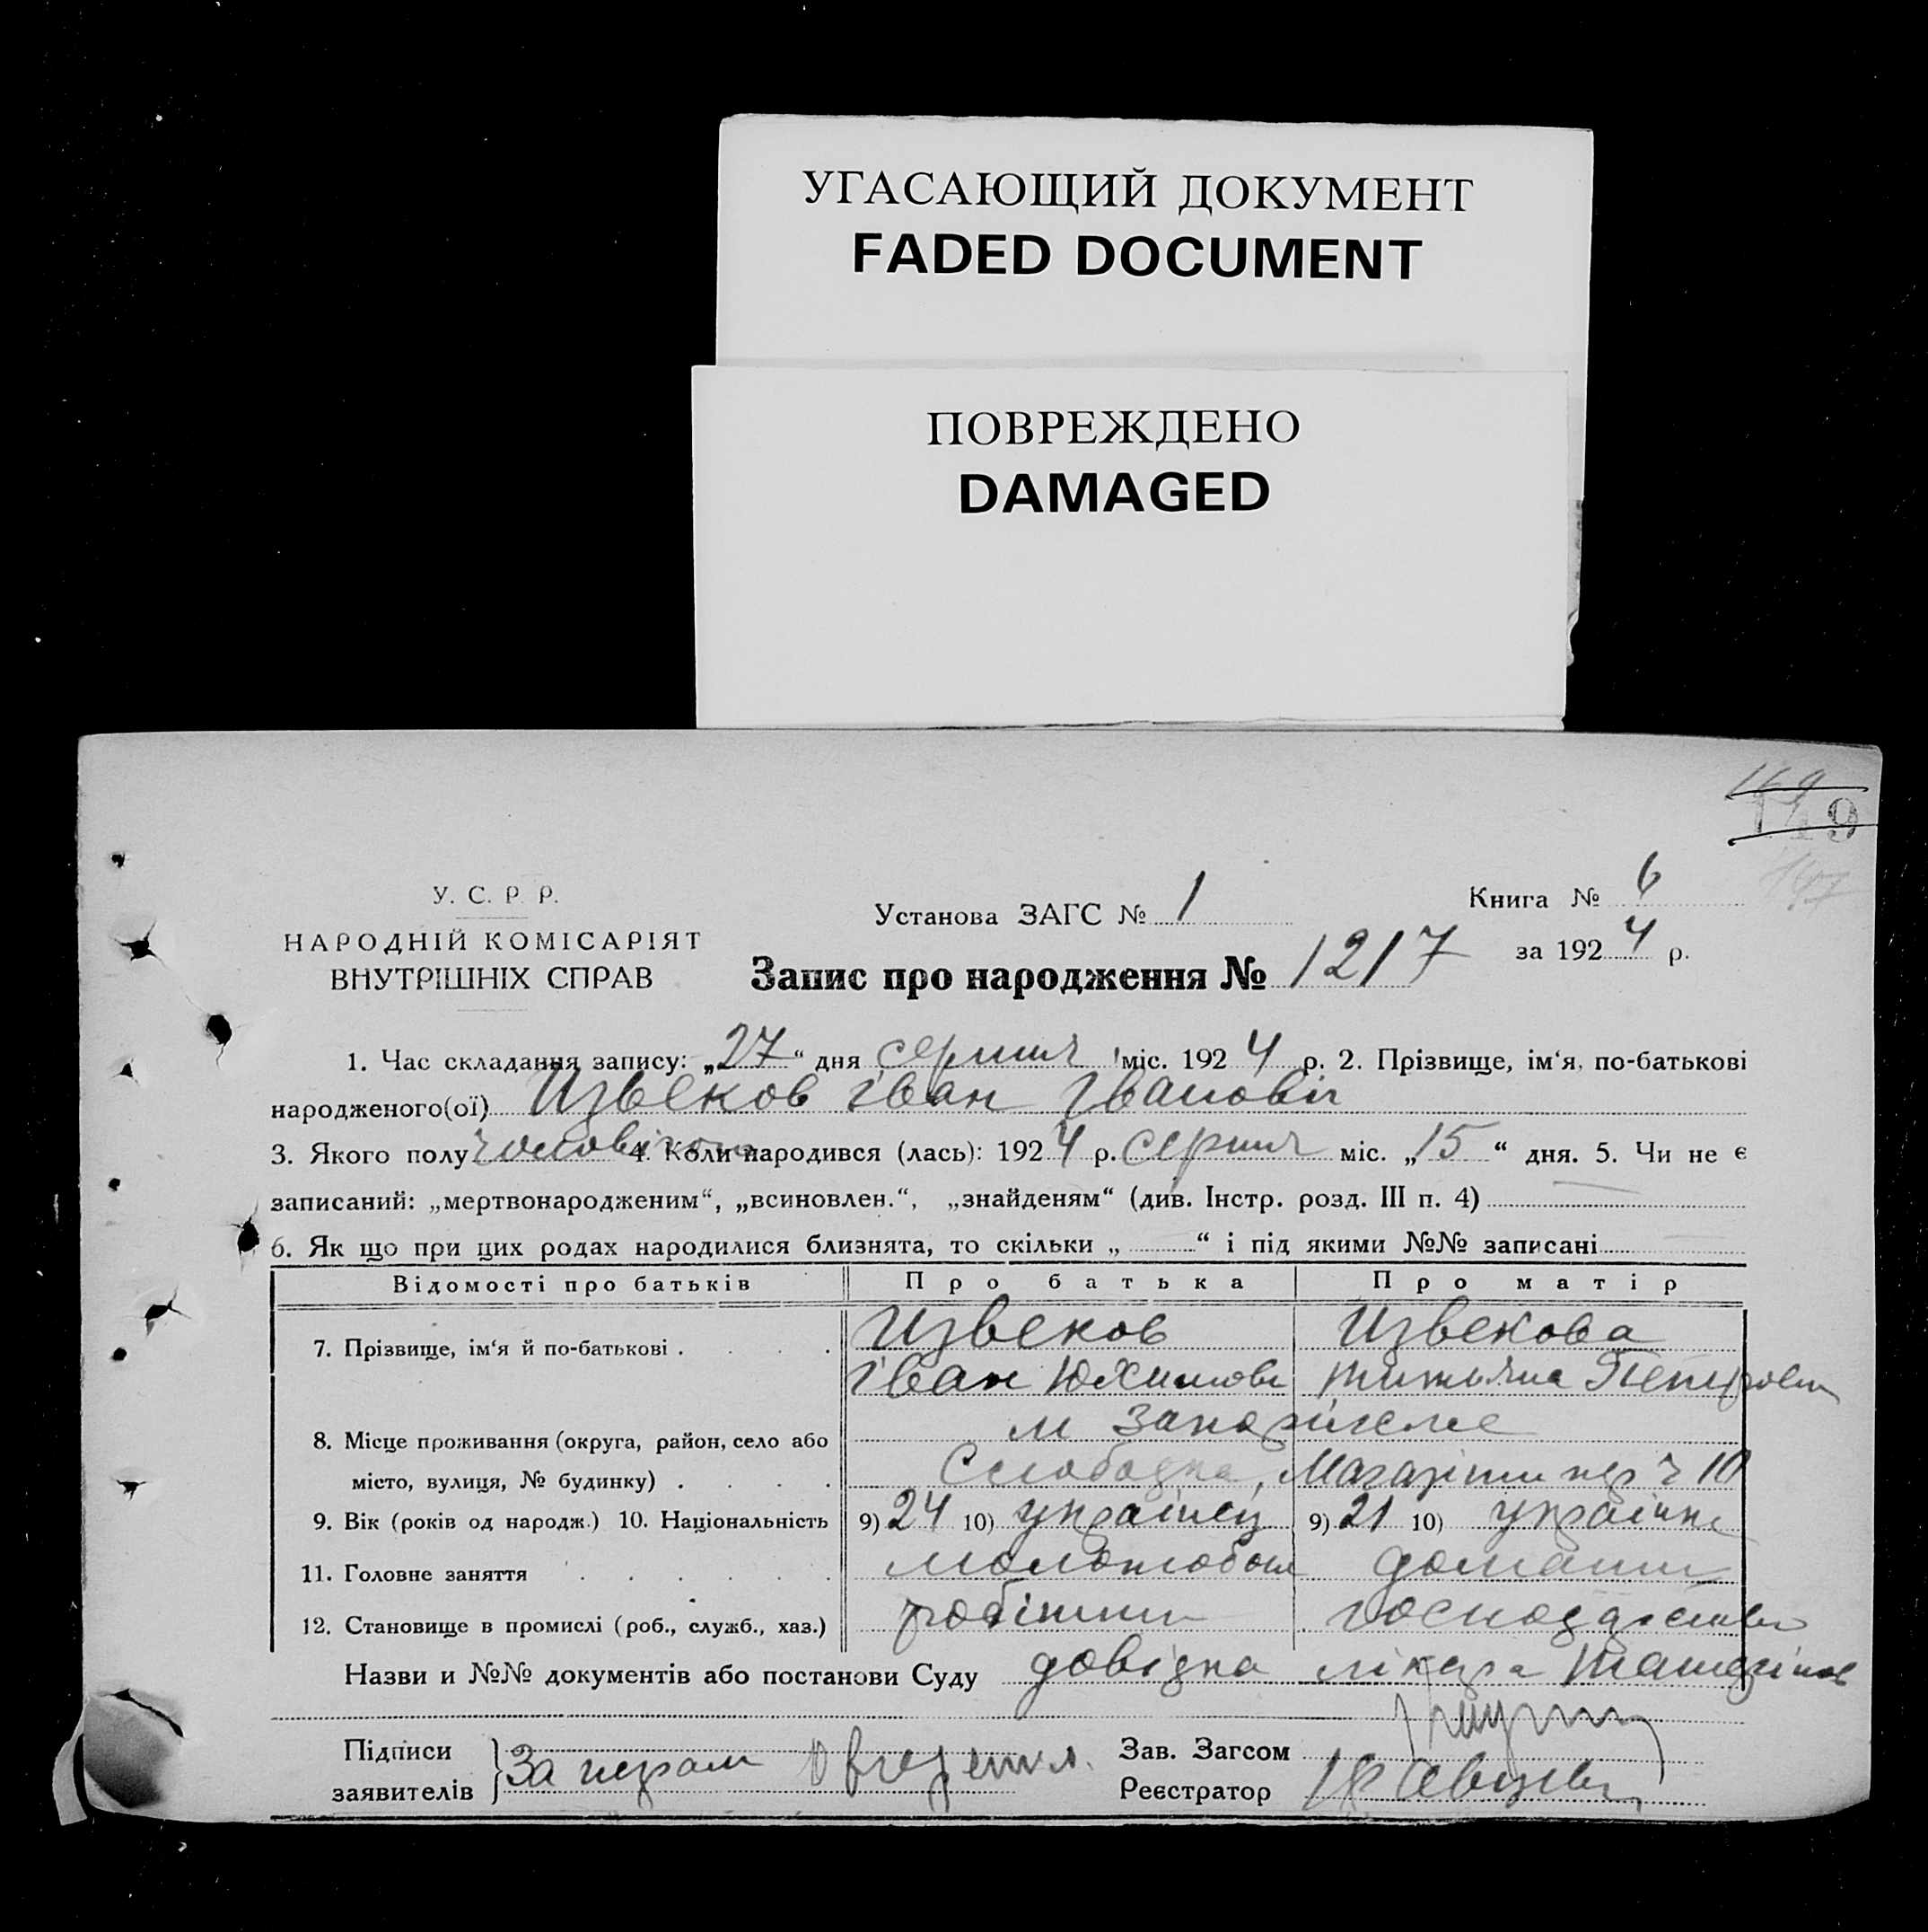 УГАСАЮЩИЙ ДОКУМЕНТ
FADED DOCUMENT
ПОВРЕЖДЕНО
DAMAGED
149
У. С. Р. Р.
НАРОДНІЙ КОМІСАРІЯТ
ВНУТРІШНІХ СПРАВ
Установа ЗАГС № 1
Книга № 6
за 1924 р.
Запис про народження № 1217
1. Час складання запису: „27“ дня серпня міс. 1924 р. 2. Прізвище, ім‘я, по-батькові
народженого(ої) Извеков Іван Іванович
3. Якого полу чоловічого 4. Коли народився (лась): 1924 р. серпня міс. „15“ дня. 5. Чи не є
записаний: „мертвонародженим“, „всиновлен.“, „знайденям“ (див. Інстр. розд. III п. 4)
6. Як що при цих родах народилися близнята, то скільки „ “ і під якими №№ записані
Відомості про батьків Про батька Про матір
7. Прізвище, ім‘я й по-батькові . . . . Извеков Извекова
Іван Юхимов Титьяна Петровна
8. Місце проживання (округа, район, село або м Запоріжжє
місто, вулиця, № будинку) . . . . Слободка, пер ч 10
9. Вік (років од народж.) 10. Національність 9) 24 10) українец 9) 21 10) українка
11. Головне заняття . . . . . . молотобоец домашн
12. Становище в промислі (роб., служб., хаз.) робітник господарство
Назви и №№ документів або постанови Суду довідка лікаря
Підписи
заявителів
Зав. Загсом
Реєстратор